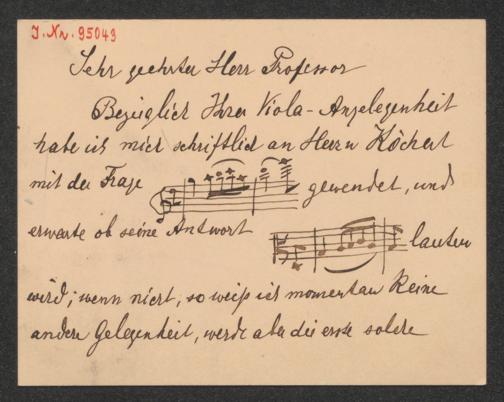 I.Nr. 95043
Sehr geehrter Herr Professor
Bezüglich Ihrer Viola-Angelegenheit
habe ich mich schriftlich an Herrn Köchert
mit der Frage gewendet, und
erwarte ob seine Antwort lauten
wird; wenn nicht, so weiß ich momentan keine
andere Gelegenheit, werde aber die erste solche